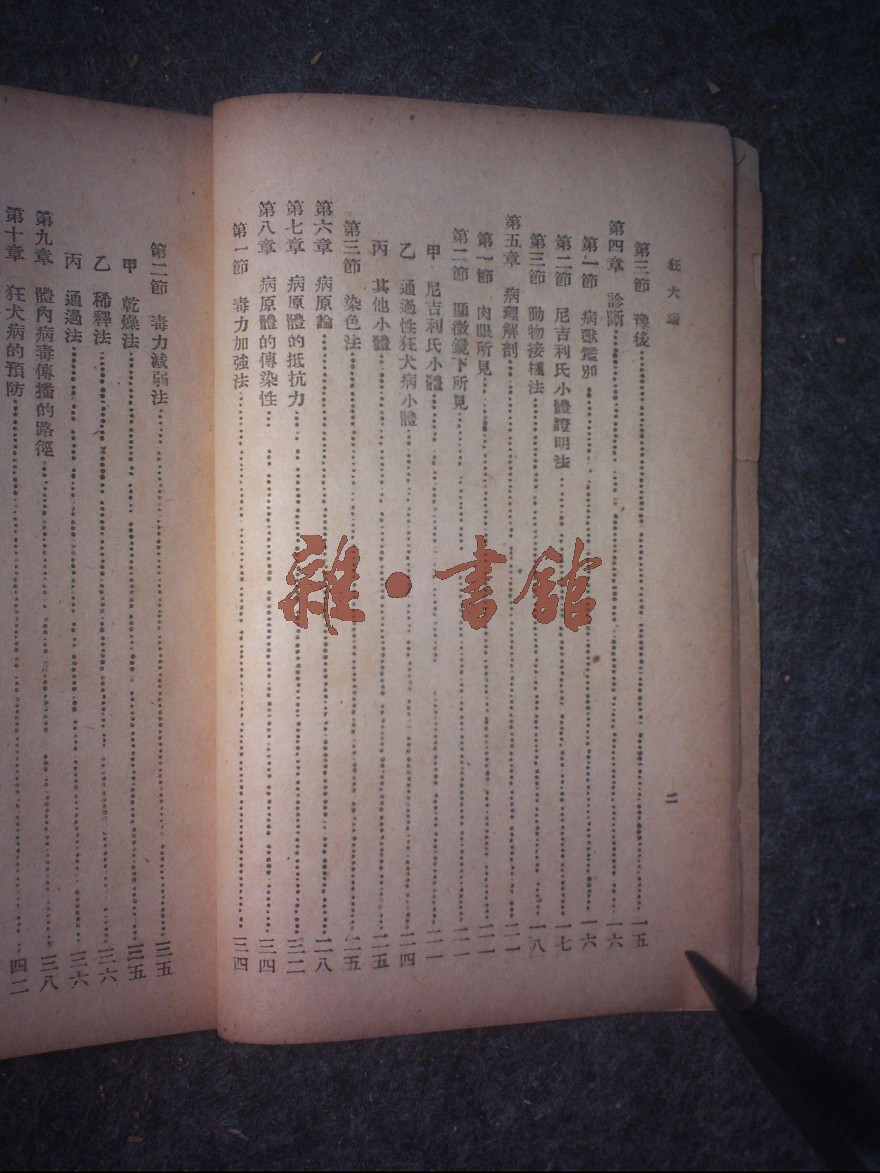 狂犬
二
第三節　豫後……一五
第四章　診斷……一六
第一節　病獸鑑別……一六
第二節　尼吉利氏小體證明法……一七
第三節　動物接種法……一八
第五章　病理解剖……二一
第一節　肉眼所見……二一
第二節　顯微鏡下所見……二一
甲　尼吉利氏小體……二一
乙　通過性狂犬病小體……二四
丙　其他小體……二五
第三節　染色法……二五
第六章　病原論……二八
第七章　病原體的抵抗力……三二
第八章　病原體的傳染性……三四
第一節　毒力加強法……三四
第二節　毒力減弱法……三五
甲　乾燥法……三五
乙　稀釋法……三六
丙　通過法……三六
第九章　體內病毒傳播的路徑……三八
第十章　狂犬病的預防……四二
雜·書館